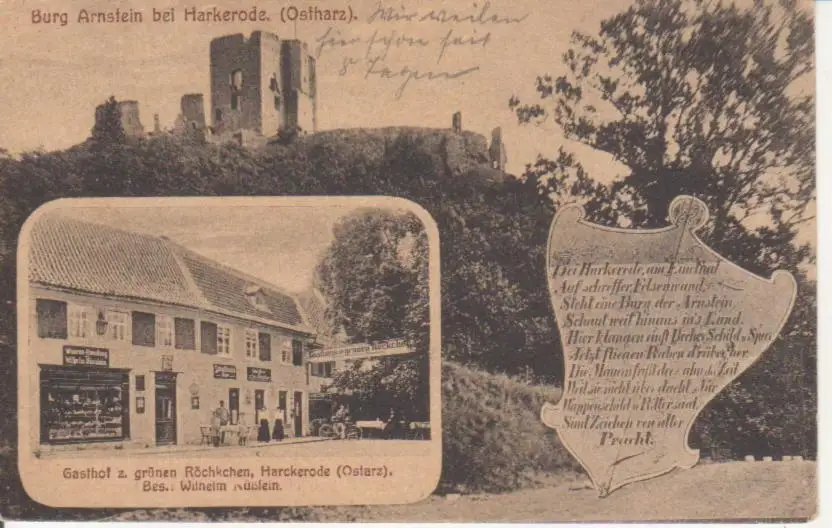 Burg Arnstein bei Harkerode. (Ostharz).
Wir weilen
hier schon seit
8 Tagen
Bei Harkerode, am Einethal
Auf schroffer Felsenwand
Steht eine Burg der Arnstein,
Schaut weit hinaus in's Land.
Hier klangen einst Becher, Schild u. Speer
Jetzt fliegen Raben drüber her.
Die Mauern frißt der Zeit
Weil sie nicht über dacht. Nur
Wappenschild u. Rittersaal,
Sind Zeichen von alter
Pracht.
Gasthof z. grünen Röchkchen, Harckerode (Ostarz).
Bes.: Wilhelm